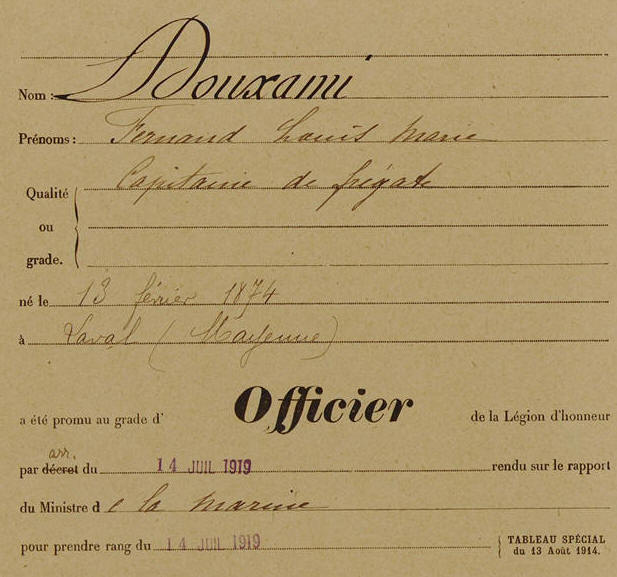 Nom : Douxami
Prénoms : Fernand Louis Marie
Qualité ou grade. Capitaine de frégate
né le 13 février 1874
à Laval (Mayenne)
a été promu au grade d' Officier de la Légion d'honneur
arr.
par décret du 14 JUIL 1919 rendu sur le rapport
du Ministre de la marine
pour prendre rang du 14 JUIL 1919 TABLEAU SPÉCIAL
du 13 Août 1914.